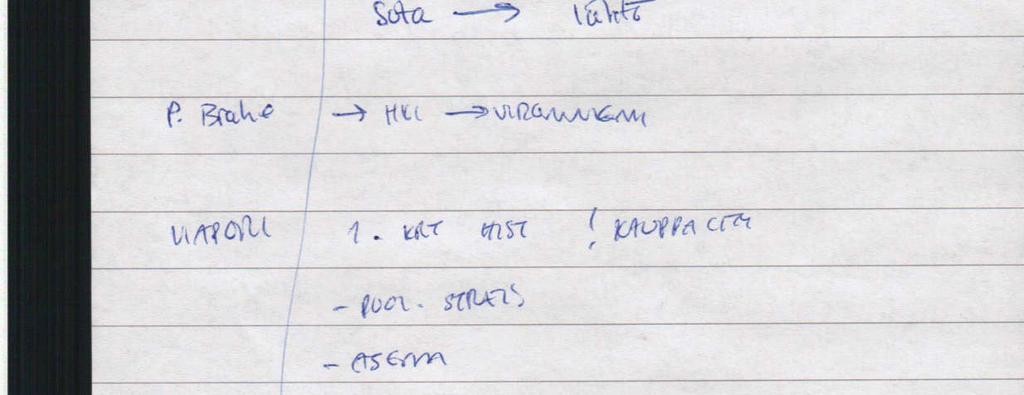 Sota → lähtö
P. Brahe → HKI → VIRONNIEMI
VIAPORI 1. KRT HIST ! KAUPPA
- PUOL. STRATS
- ASEMA